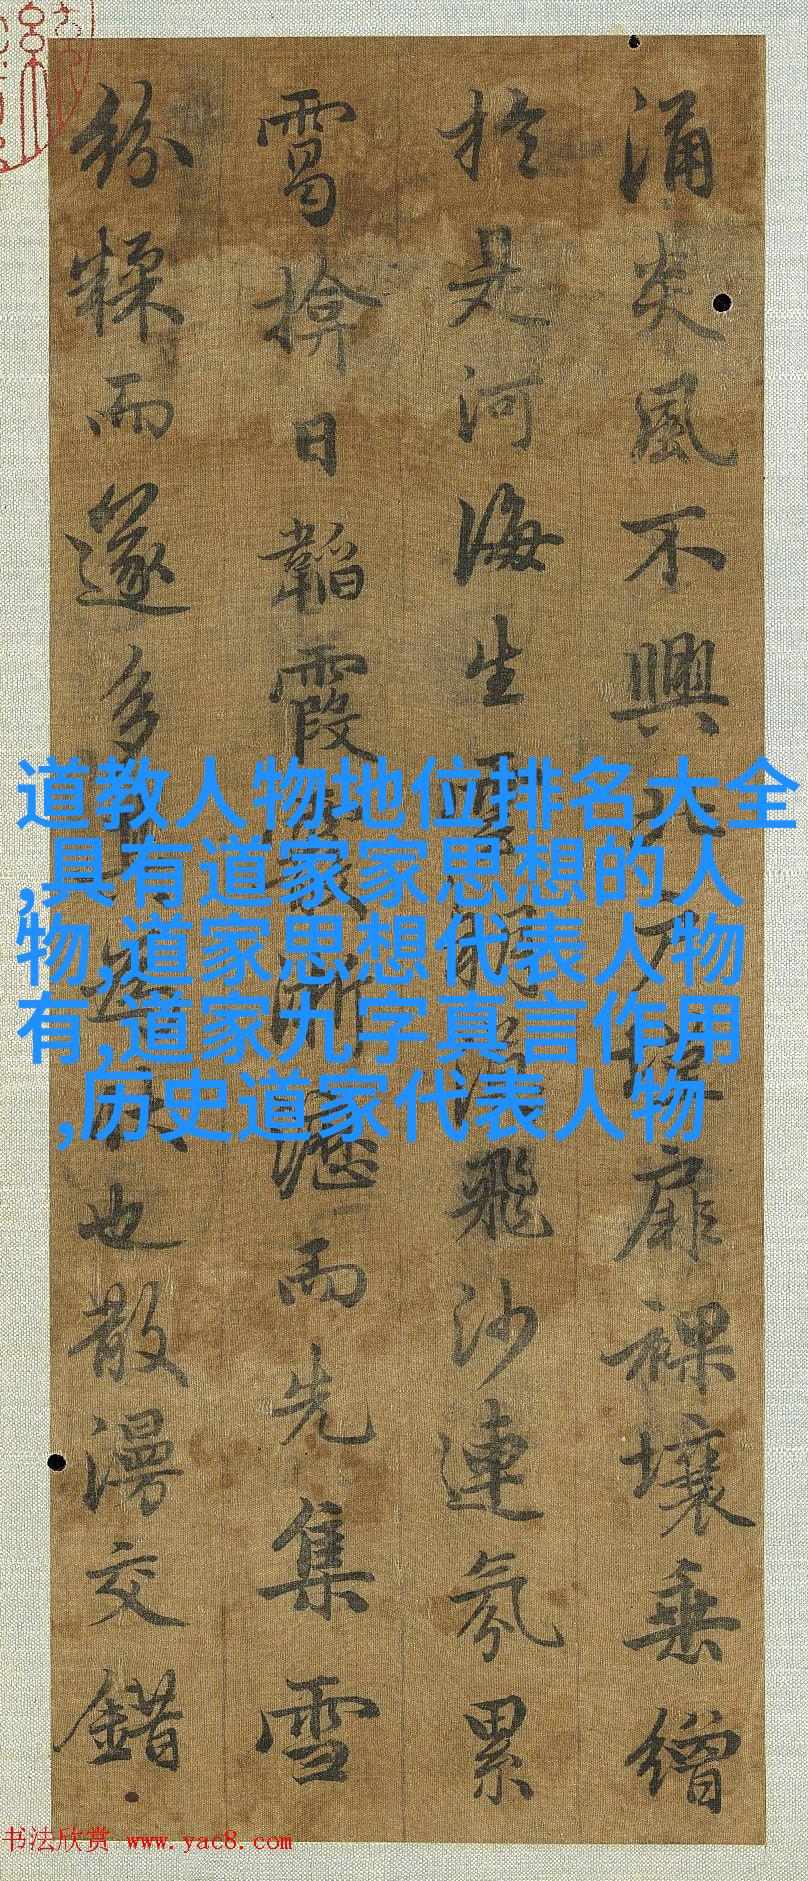 涌炎風不興北戶墐扉裸壤垂繒
於是河海生雲朔漠飛沙連氛累
靄揜日韜霞霰淅瀝而先集雪
紛糅而遂多其為狀也散漫交錯
道教人物地位排名大全
,具有道家家思想的人
物,道家思想代表人物
有,道家九字真言作用
,历史道家代表人物
书法欣赏 www.yac8.com